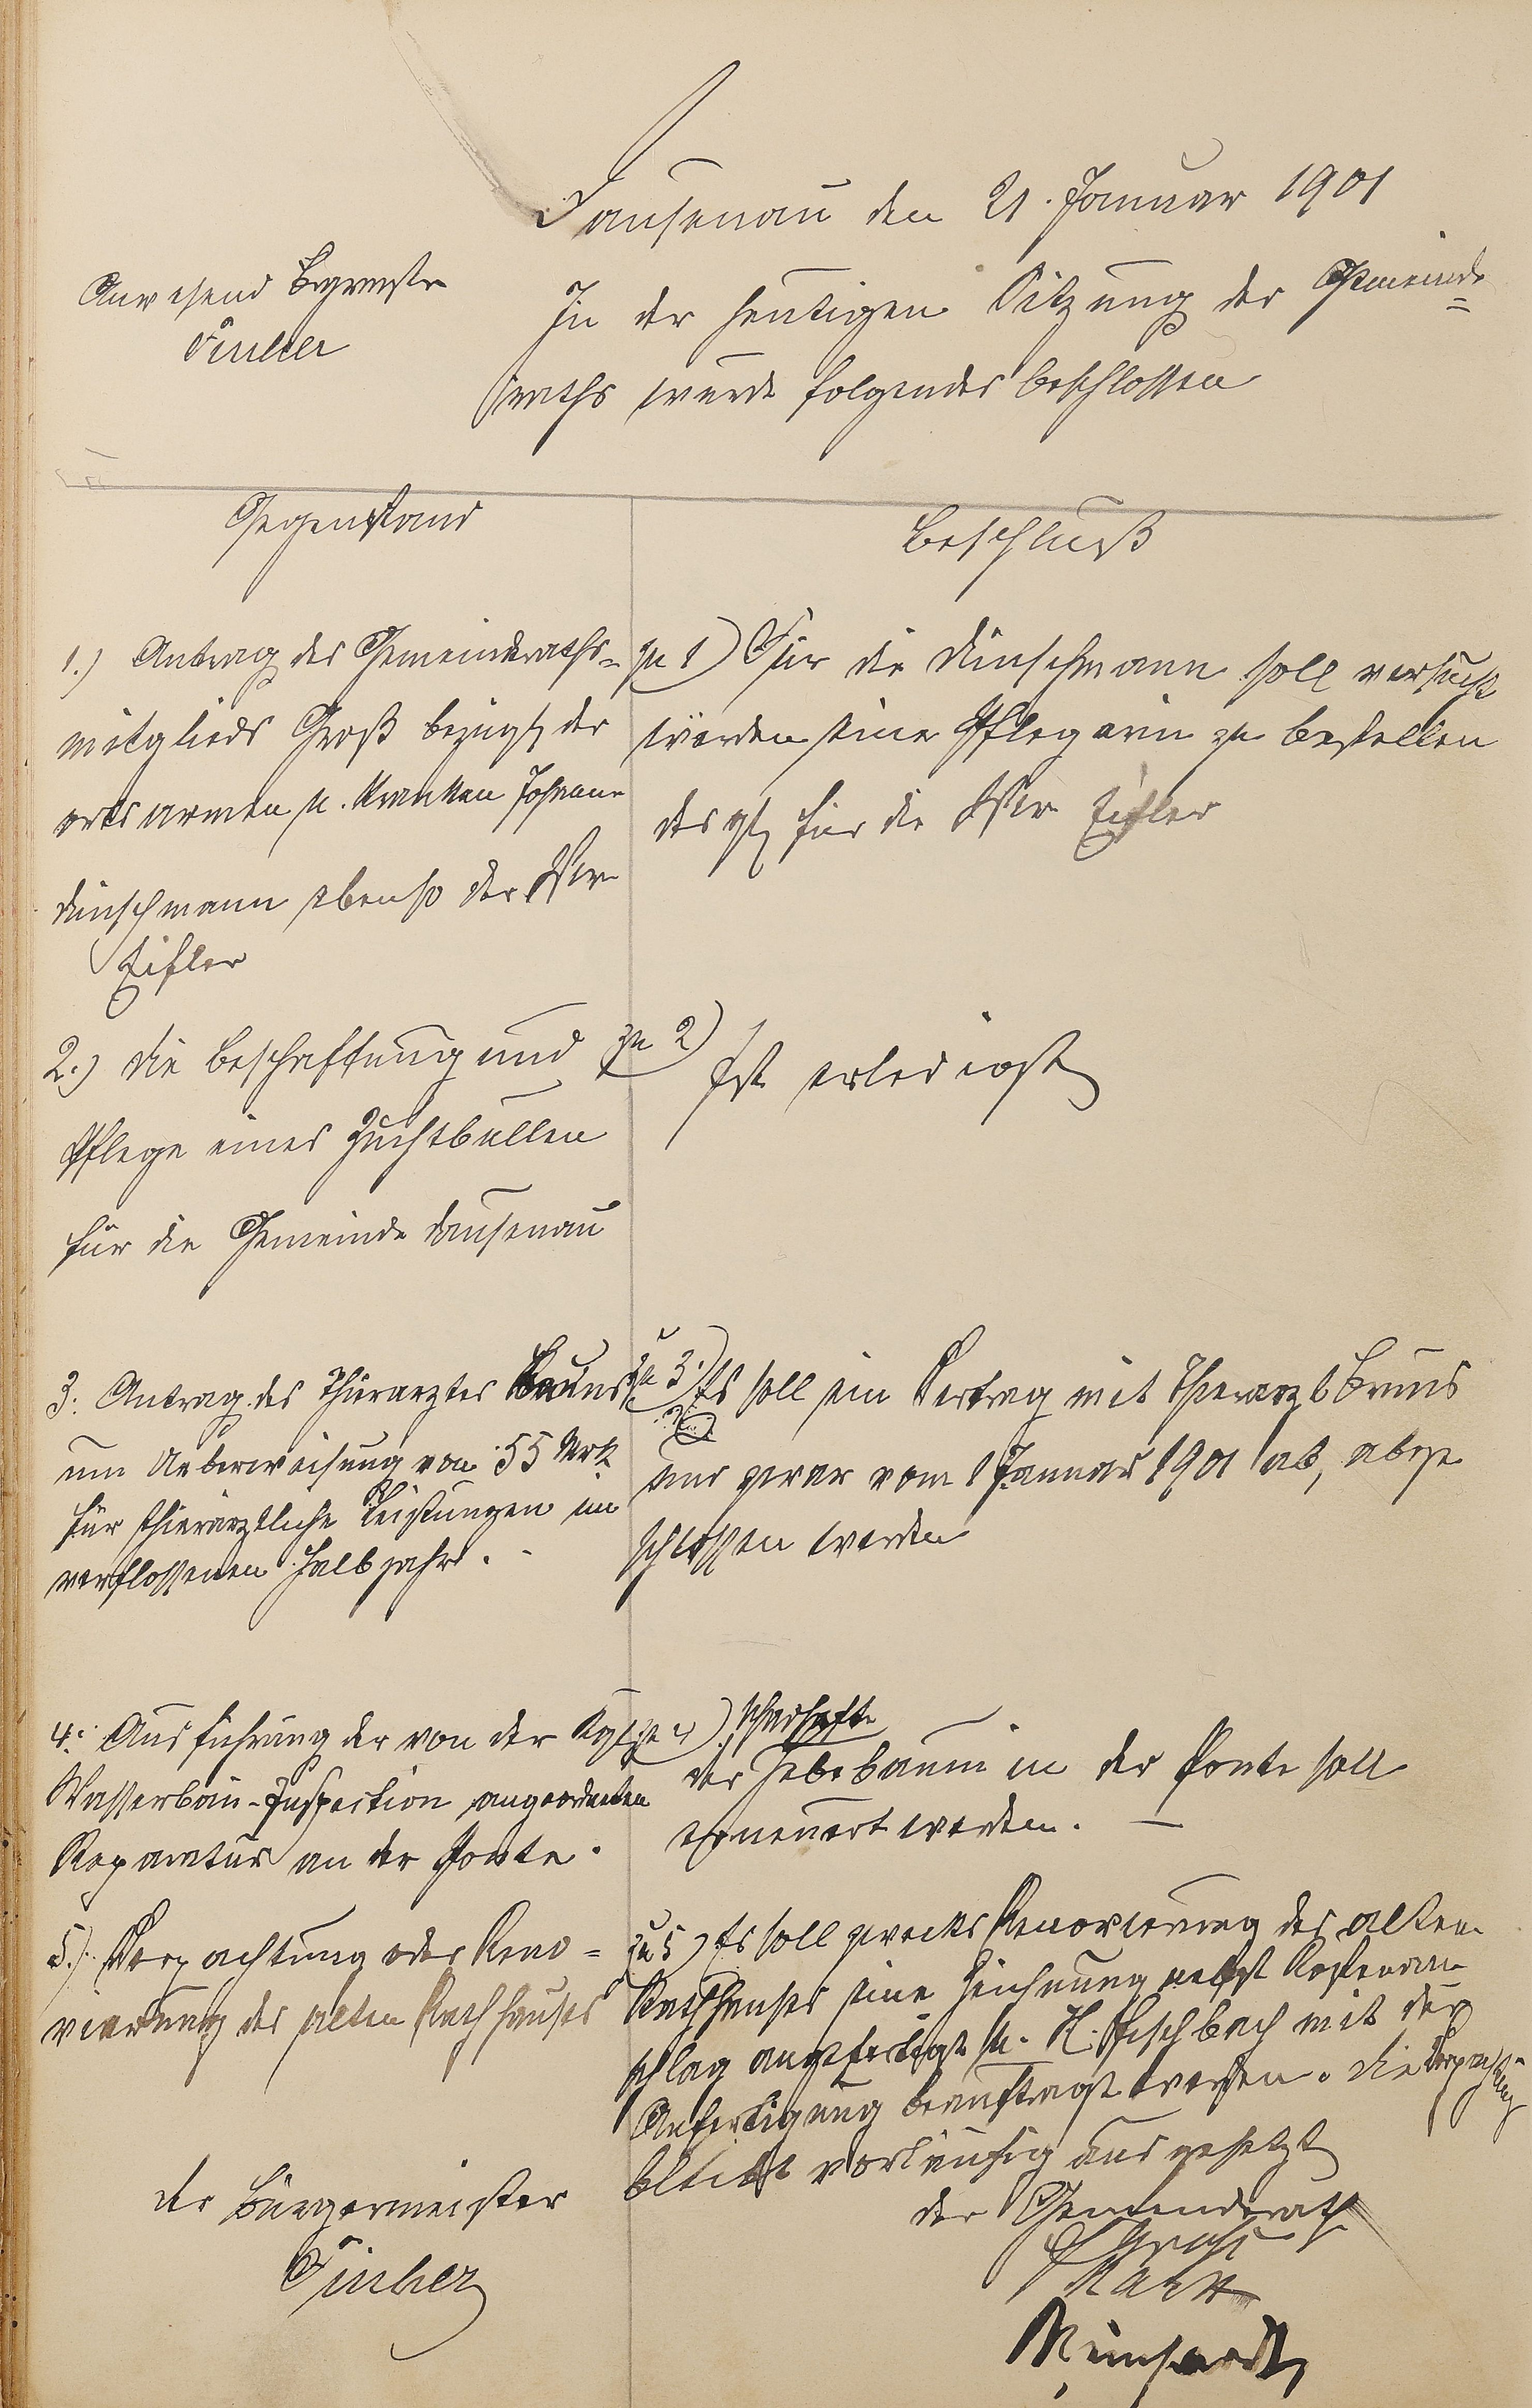 Dausenau den 21. Januar 1901
Anwesend Bgrmstr
In der heutigen Sitzung der Gemeinde=
raths wurde folgendes beschlossen
Gegenstand
Beschluß
1.) Antrag des Gemeinderaths=
mitglieds Groß bezügl. der
ortsarmen u. kranken Johann
Dinschmann ebenso der Wwe
Eisler
zu 1) Für die Dinschmann soll versucht
werden eine Pflegerin zu bestellen
desgl. für die Wwe Eisler
2.) Die Beschaffung und
Pflege eines Zuchtbullen
für die Gemeinde Dausenau
zu 2) Ist erledigt
3. Antrag des Thierarztes Bruns
um Ueberweisung von 55 Mrk.
für thierärztliche Leistungen im
verflossenen Halbjahr.
zu 3.) Es soll ein Vertrag mit Thierarzt Bruns
und zwar vom 1 Januar 1901 ab, abge
schlossen werden
4. Ausführung der von der Kgl.
Wasserbau-Inspection angeordneten
Reparatur an der Ponte.
zu 4) schadhafte
der Hebebaum in der Ponte soll
erneuert werden. —
5.) Verpachtung oder Reno=
vierung des alten Rathhauses
zu 5) Es soll zwecks Renovierung des alten
Rathhauses eine Zeichnung nebst Kostenan
schlag angefertigt u. H. Fischbach mit der
Anfertigung beauftragt werden. Die Verpachtung
bleibt vorläufig ausgesetzt
der Bürgermeister
der Gemeinderath
Groß
Reinhardt